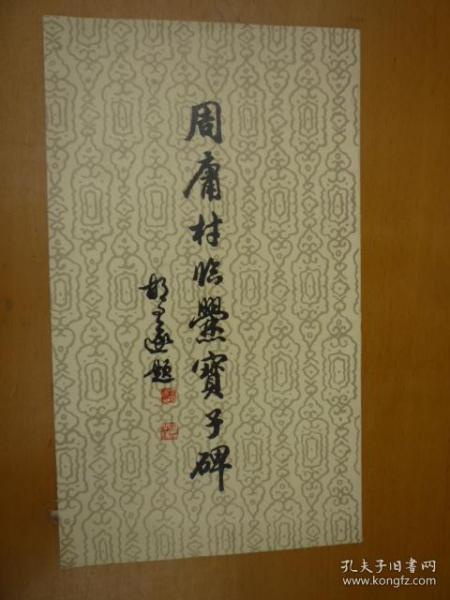 周庸村临爨寳子碑
胡問遂題
孔夫子旧书网
www.kongfz.com